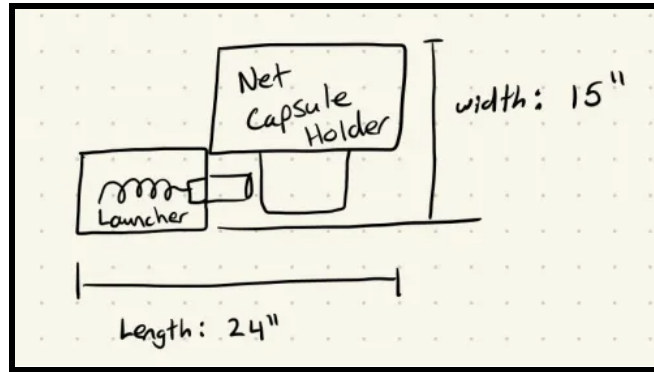 Net
Capsule
Holder
width: 15"
Launcher
Length: 24"